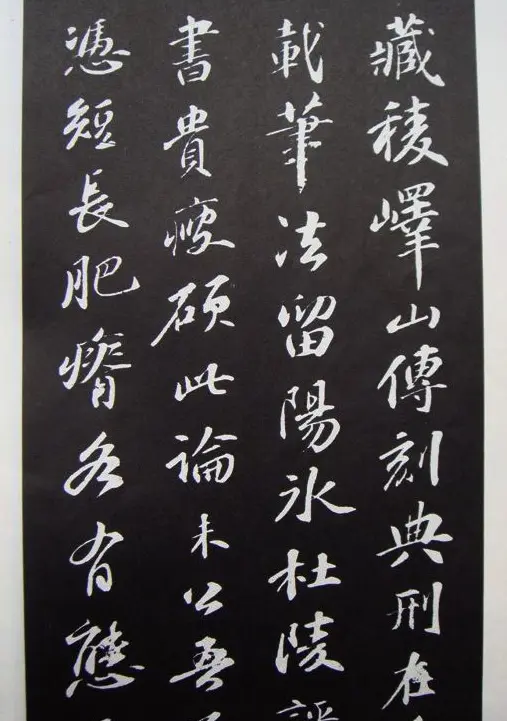 藏稜嶧山傳刻典刑在
載筆法留陽氷杜陵評
書貴瘦硬此論未公吾
憑短長肥瘠各有態